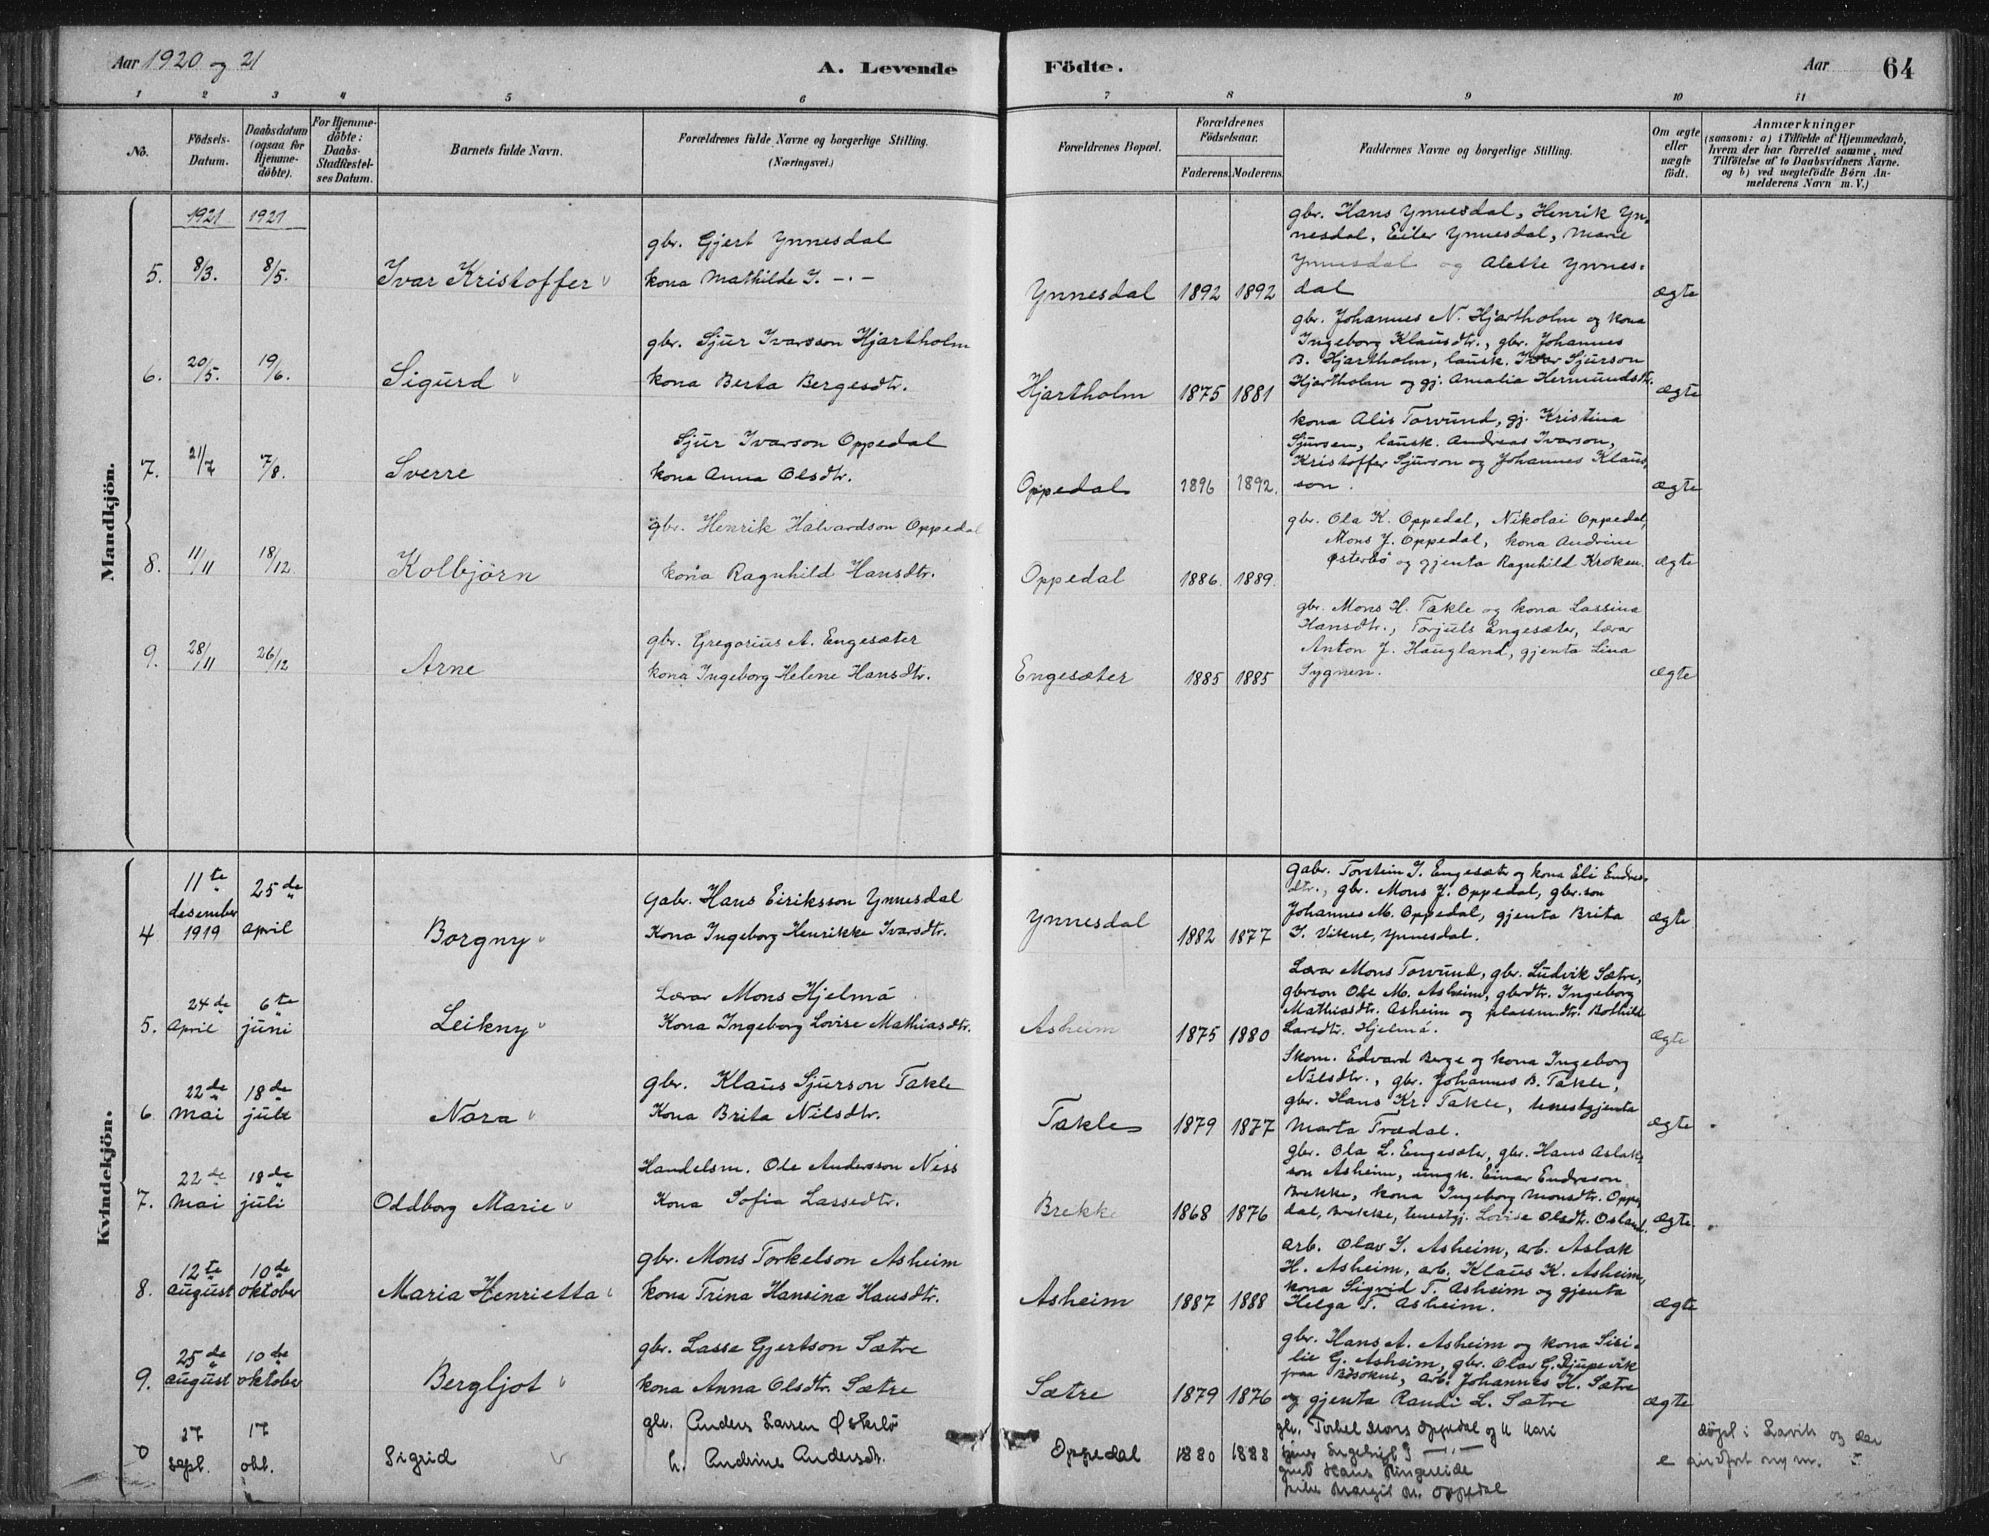 Aar 1920 og 21
A. Levende Födte.
Aar 64
1 2 3 4 5 6 7 8 9 10 11
No.
Födsels-Datum.
Daabsdatum (ogsaa for Hjemme-döbte).
For Hjemme-döbte: Daabs-Stadfæstel-ses Datum.
Barnets fulde Navn.
Forældrenes fulde Navne og borgerlige Stilling. (Næringsvei.)
Forældrenes Bopæl.
Forældrenes Födselsaar.
Faderens. Moderens.
Faddernes Navne og borgerlige Stilling.
Om ægte eller uægte födt.
Anmærkninger
(saasom: a) i Tilfælde af Hjemmedaab,
hvem der har forrettet samme, med
Tilföielse af to Daabsvidners Navne.
og b) ved uægtefödte Börn An-
melderens Navn m. V.)
Mandkjön.
1921 1921
5. 8/3. 8/5. Ivar Kristoffer
gbr. Gjert Ynnesdal
kona Mathilde I. -·-
Ynnesdal 1892 1892
gbr. Hans Ynnesdal, Henrik Yn-
nesdal, Eiler Ynnesdal, Marie
Ynnesdal og Alette Ynnes-
dal
ægte
6. 20/5. 19/6. Sigurd
gbr. Sjur Ivarsson Hjartholm
kona Berta Bergesdtr.
Hjartholm 1875 1881
gbr. Johannes N. Hjartholm og kona
Ingeborg Klausdtr., gbr. Johannes
B. Hjartholm, lausk. Ivar Sjurson
Hjartholm og gj. Amalia Hermundsdtr.
ægte
7. 21/7 7/8. Sverre
Sjur Ivarson Oppedal
kona Anna Olsdtr.
Oppedal 1896 1892.
kona Alis Torvund, gj. Kristina
Sjursen, lausk. Andreas Ivarson,
Kristoffer Sjurson og Johannes Klaus-
son.
ægte
8. 11/11 18/12 Kolbjörn
gbr. Henrik Halvardson Oppedal
kona Ragnhild Hansdtr.
Oppedal 1886. 1889.
gbr. Ola K. Oppedal, Nikolai Oppedal,
Mons J. Oppedal, kona Andrine
Østerbö og gjenta Ragnhild Kroken.
ægte
9. 28/11 26/12 Arne
gbr. Gregorius A. Engesæter
kona Ingeborg Helene Hansdtr.
Engesæter 1885 1885
gbr. Mons H. Takle og kona Lassina
Hansdtr., Torjuls Engesæter, lærar
Anton J. Haugland, gjenta Lina
Sygnen.
ægte
Kvindekjön.
4 11te desember 1919 25de april Borgny
Gabr. Hans Eiriksson Ynnesdal
Kona Ingeborg Henrikke Ivarsdtr.
Ynnesdal 1882 1877
Gabr. Torstein I. Engesæter og kona Eli Endres-
dtr., gbr. Mons J. Oppedal, gbr.son
Johannes M. Oppedal, gjenta Brita
I. Vikne, Ynnesdal.
ægte
5. 24de April 6te juni Leikny
Lærar Mons Hjelmå
Kona Ingeborg Lovise Mathiasdtr.
Asheim 1875 1880
Lærar Mons Torvund, gbr. Ludvik Sætre,
gbrson Ole M. Asheim, gbrdtr. Ingeborg
Mathiasdtr. Asheim og plassmdtr. Bothild
Larsdtr. Hjelmå.
ægte
6. 22de mai 18de juli Nora
gbr. Klaus Sjurson Takle
Kona Brita Nilsdtr.
Takle 1879 1877
Skom. Edvard Berge og kona Ingeborg
Nilsdtr., gbr. Johannes B. Takle,
gbr. Hans Kr. Takle, tenestgjenta
Marta Trædal.
ægte
7. 22de mai 18de juli Oddborg Marie
Handelsm. Ole Andersson Ness
Kona Sofia Lassedtr.
Brekke 1868 1876
gbr. Ola L. Engesæter, gbr. Hans Aslak-
son Asheim, ungk. Einar Endreson
Brekke, kona Ingeborg Monsdtr. Oppe-
dal, Brekke, tenestgj. Lovise Olsdtr. Osland.
ægte
8. 12te august 10de oktober Maria Henrietta
gbr. Mons Torkelson Asheim
kona Trina Hansina Hansdtr.
Asheim 1887 1888
arb. Olav I. Asheim, arb. Aslak
H. Asheim, arb. Klaus K. Asheim,
kona Sigrid T. Asheim og gjenta
Helga T. Asheim.
ægte
9. 25de august 10de oktober Bergljot
gbr. Lasse Gjertson Sætre
kona Anna Olsdtr. Sætre
Sætre 1879 1876
gbr. Hans A. Asheim og kona Sisi-
lie G. Asheim, gbr. Olav G. Djupevik
fraa, arb. Johannes H. Sætre
og gjenta Randi L. Sætre
ægte
0 27 sept. 17 okt. Sigrid
gbr. Anders Larsen Østerbø
h. Andrine Andersdt.
Oppedal 1880 1888
gbr. Torkel Mons Oppedal og K Kari
Hans Ringereide
Margit M. Oppedal
e
døypt i Lavik og der
indført